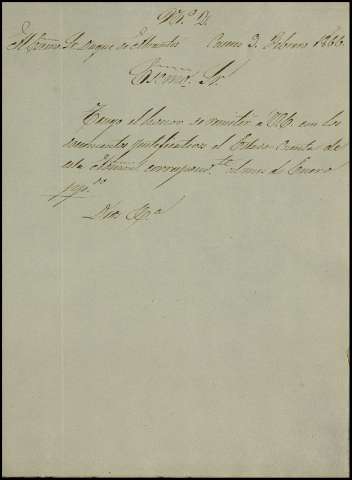 N.º 2.
Al Excmo. Sr. Duque de Abrantes Enero 3. Febrero 1866.
Excmo. Sr.
Tengo el honor de remitir a V.E. con los
documentos justificativos el Estado Cuenta de
esta correspond.te al mes de Enero
pp.do
Dios &.a